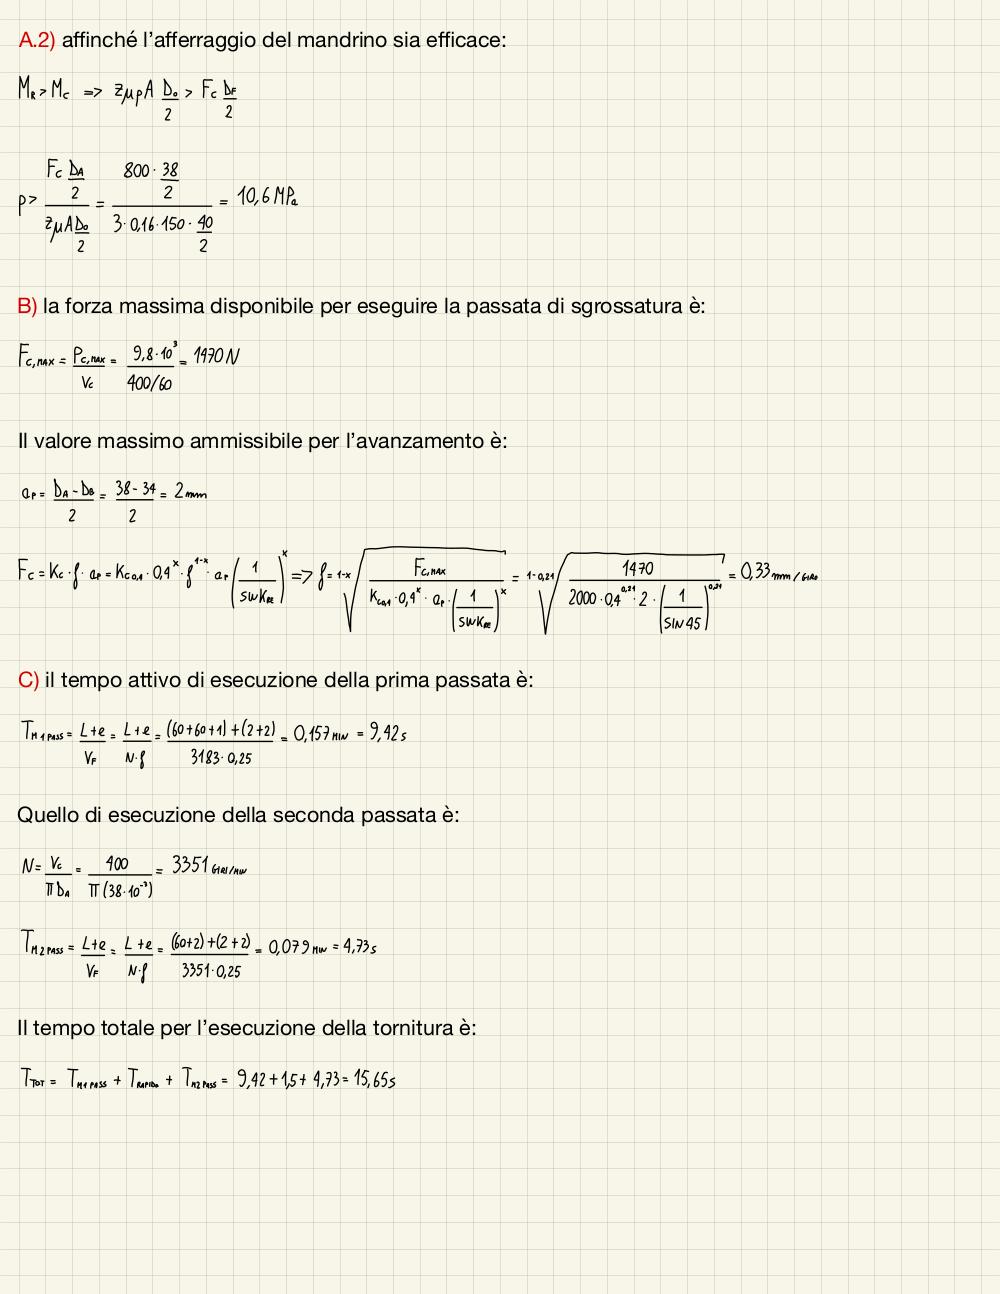 A.2) affinché l'afferraggio del mandrino sia efficace:
M_R > M_C => zμpA D_0/2 > F_C D_F/2
p > (F_C D_A/2)/(zμA D_0/2) = (800 · 38/2)/(3 · 0,16 · 150 · 40/2) = 10,6 MPa
B) la forza massima disponibile per eseguire la passata di sgrossatura è:
F_C,MAX = P_C,MAX/V_C = 9,8·10³/(400/60) = 1470 N
Il valore massimo ammissibile per l'avanzamento è:
a_P = (D_A - D_B)/2 = (38 - 34)/2 = 2 mm
F_C = K_C · f · a_P = K_C0,4 · 0,4^x · f^(1-x) · a_P (1/SIN K_RE)^x => f = ^(1-x)√(F_C,MAX/(K_C0,4 · 0,4^x · a_P · (1/SIN K_RE)^x)) = ^(1-0,21)√(1470/(2000 · 0,4^0,21 · 2 · (1/SIN 45)^0,21)) = 0,33 mm/GIRO
C) il tempo attivo di esecuzione della prima passata è:
T_M 1 PASS = (L+e)/V_F = (L+e)/(N·f) = ((60+60+1)+(2+2))/(3183·0,25) = 0,157 MIN = 9,42 s
Quello di esecuzione della seconda passata è:
N = V_C/(π D_A) = 400/(π (38·10^-3)) = 3351 GIRI/MIN
T_M 2 PASS = (L+e)/V_F = (L+e)/(N·f) = ((60+2)+(2+2))/(3351·0,25) = 0,079 MIN = 4,73 s
Il tempo totale per l'esecuzione della tornitura è:
T_TOT = T_M1 PASS + T_RAPIDO + T_M2 PASS = 9,42 + 1,5 + 4,73 = 15,65 s